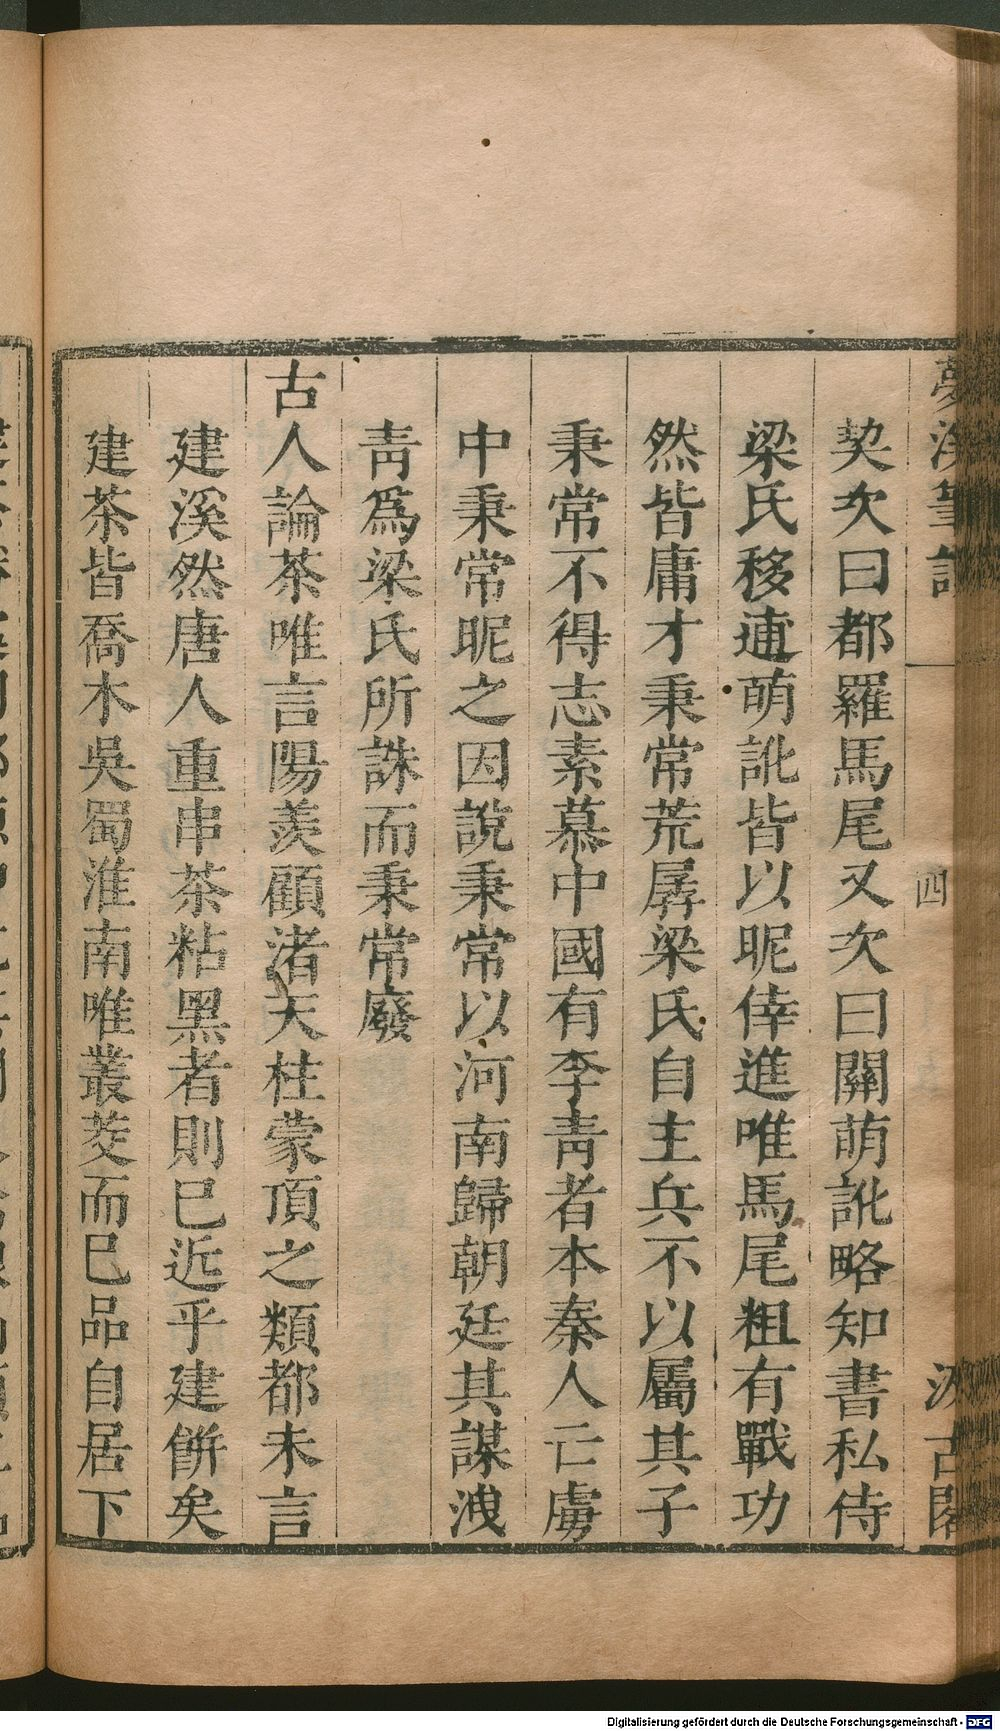 契次曰都羅馬尾又次曰關萌訛略知書私侍
梁氏移逋萌訛皆以昵倖進唯馬尾粗有戰功
然皆庸才秉常荒孱梁氏自主兵不以屬其子
秉常不得志素慕中國有李青者本秦人亡虜
中秉常昵之因說秉常以河南歸朝廷其謀洩
青爲梁氏所誅而秉常廢
古人論茶唯言陽羨顧渚天柱蒙頂之類都未言
建溪然唐人重串茶粘黑者則已近乎建餅矣
建茶皆喬木吳蜀淮南唯叢茭而已品自居下
夢溪筆談
四
汲古閣
Digitalisierung gefördert durch die Deutsche Forschungsgemeinschaft - DFG